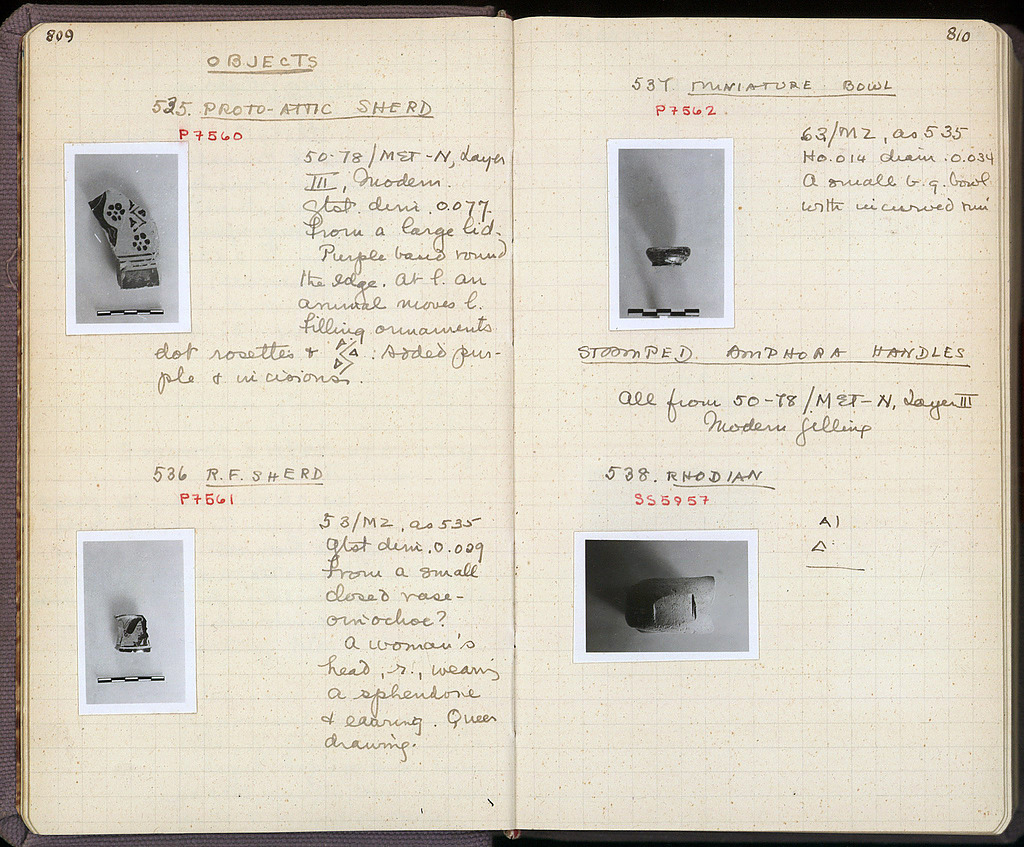 809
OBJECTS
535. PROTO-ATTIC SHERD
P7560
50-78/MΣT-N, Layer
III, Modern.
Gtst. dim. 0.077.
From a large lid.
Purple band round
the edge. At l. an
animal moves l.
Filling ornaments
dot rosettes & : Added pur-
ple & incisions.
536 R.F. SHERD
P7561
53/MZ, as 535
Gtst dim. 0.029
From a small
closed vase-
oinochoe?
A woman's
head, r., wearing
a sphendone
& earring. Queer
drawing.
810
537. MINIATURE BOWL
P7562
63/MZ, as 535
H0.014 diam. 0.034
A small b.g. bowl
with incurved rim
STAMPED AMPHORA HANDLES
All from 50-78/MΣT-N, Layer III
Modern filling
538. RHODIAN
SS5957
AI
Δ